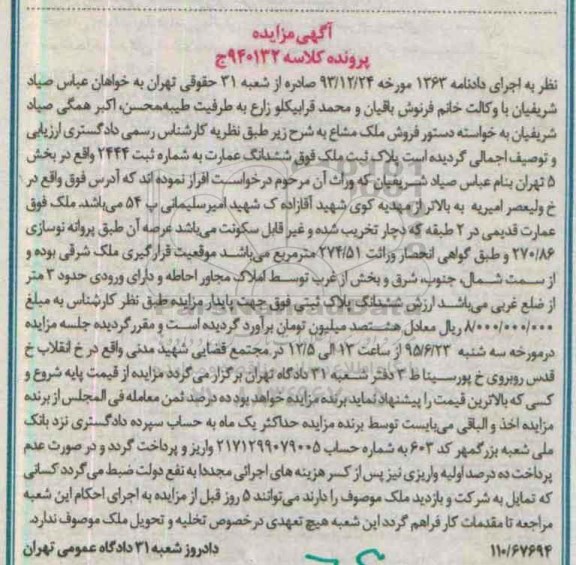 آگهی مزایده
پرونده کلاسه ۹۴۰۱۳۲ج
نظر به اجرای دادنامه ۱۳۶۳ مورخه ۹۳/۱۲/۲۴ صادره از شعبه ۳۱ حقوقی تهران به خواهان عباس صیاد
شریفیان با وکالت خانم فرنوش باقیان و محمد قرابیکلو زارع به طرفیت طیبه،محسن، اکبر همگی صیاد
شریفیان به خواسته دستور فروش ملک مشاع به شرح زیر طبق نظریه کارشناس رسمی دادگستری ارزیابی
و توصیف اجمالی گردیده است پلاک ثبت ملک فوق ششدانگ عمارت به شماره ثبت ۲۴۴۴ واقع در بخش
۵ تهران بنام عباس صیاد شریفیان که وراث آن مرحوم درخواست افراز نموده اند که آدرس فوق واقع در
خ ولیعصر امیریه به بالاتر از مهدیه کوی شهید آقازاده ک شهید امیرسلیمانی پ ۵۴ می‌باشد. ملک فوق
عمارت قدیمی در ۲ طبقه که دچار تخریب شده و غیر قابل سکونت می‌باشد عرصه آن طبق پروانه نوسازی
۲۷۰/۸۶ و طبق گواهی انحصار وراثت ۲۷۴/۵۱ مترمربع می‌باشد موقعیت قرارگیری ملک شرقی بوده و
از سمت شمال، جنوب، شرق و بخش از غرب توسط املاک مجاور احاطه و دارای ورودی حدود ۳ متر
از ضلع غربی می‌باشد ارزش ششدانگ پلاک ثبتی فوق جهت پایدار مزایده طبق نظر کارشناس به مبلغ
۸/۰۰۰/۰۰۰/۰۰۰ ریال معادل هشتصد میلیون تومان برآورد گردیده است و مقرر گردیده جلسه مزایده
درمورخه سه شنبه ۹۵/۶/۲۳ از ساعت ۱۳ الی ۱۲/۵ در مجتمع قضایی شهید مدنی واقع در خ انقلاب خ
قدس روبروی خ پورسینا ط ۳ دفتر شعبه ۳۱ دادگاه تهران برگزار می‌گردد مزایده از قیمت پایه شروع و
کسی که بالاترین قیمت را پیشنهاد نماید برنده مزایده خواهد بود ده درصد ثمن معامله فی المجلس از برنده
مزایده اخذ و الباقی می‌بایست توسط برنده مزایده حداکثر یک ماه به حساب سپرده دادگستری نزد بانک
ملی شعبه بزرگمهر کد ۶۰۳ به شماره حساب ۲۱۷۱۲۹۹۰۷۹۰۰۵ واریز و پرداخت گردد و در صورت عدم
پرداخت ده درصد اولیه واریزی نیز پس از کسر هزینه های اجرائی مجددا به نفع دولت ضبط می گردد کسانی
که تمایل به شرکت و بازدید ملک موصوف را دارند می‌توانند ۵ روز قبل از مزایده به اجرای احکام این شعبه
مراجعه تا مقدمات کار فراهم گردد این شعبه هیچ تعهدی درخصوص تخلیه و تحویل ملک موصوف ندارد.
دادرو‌ز شعبه ۳۱ دادگاه عمومی تهران
۱۱۰/۶۷۶۹۴